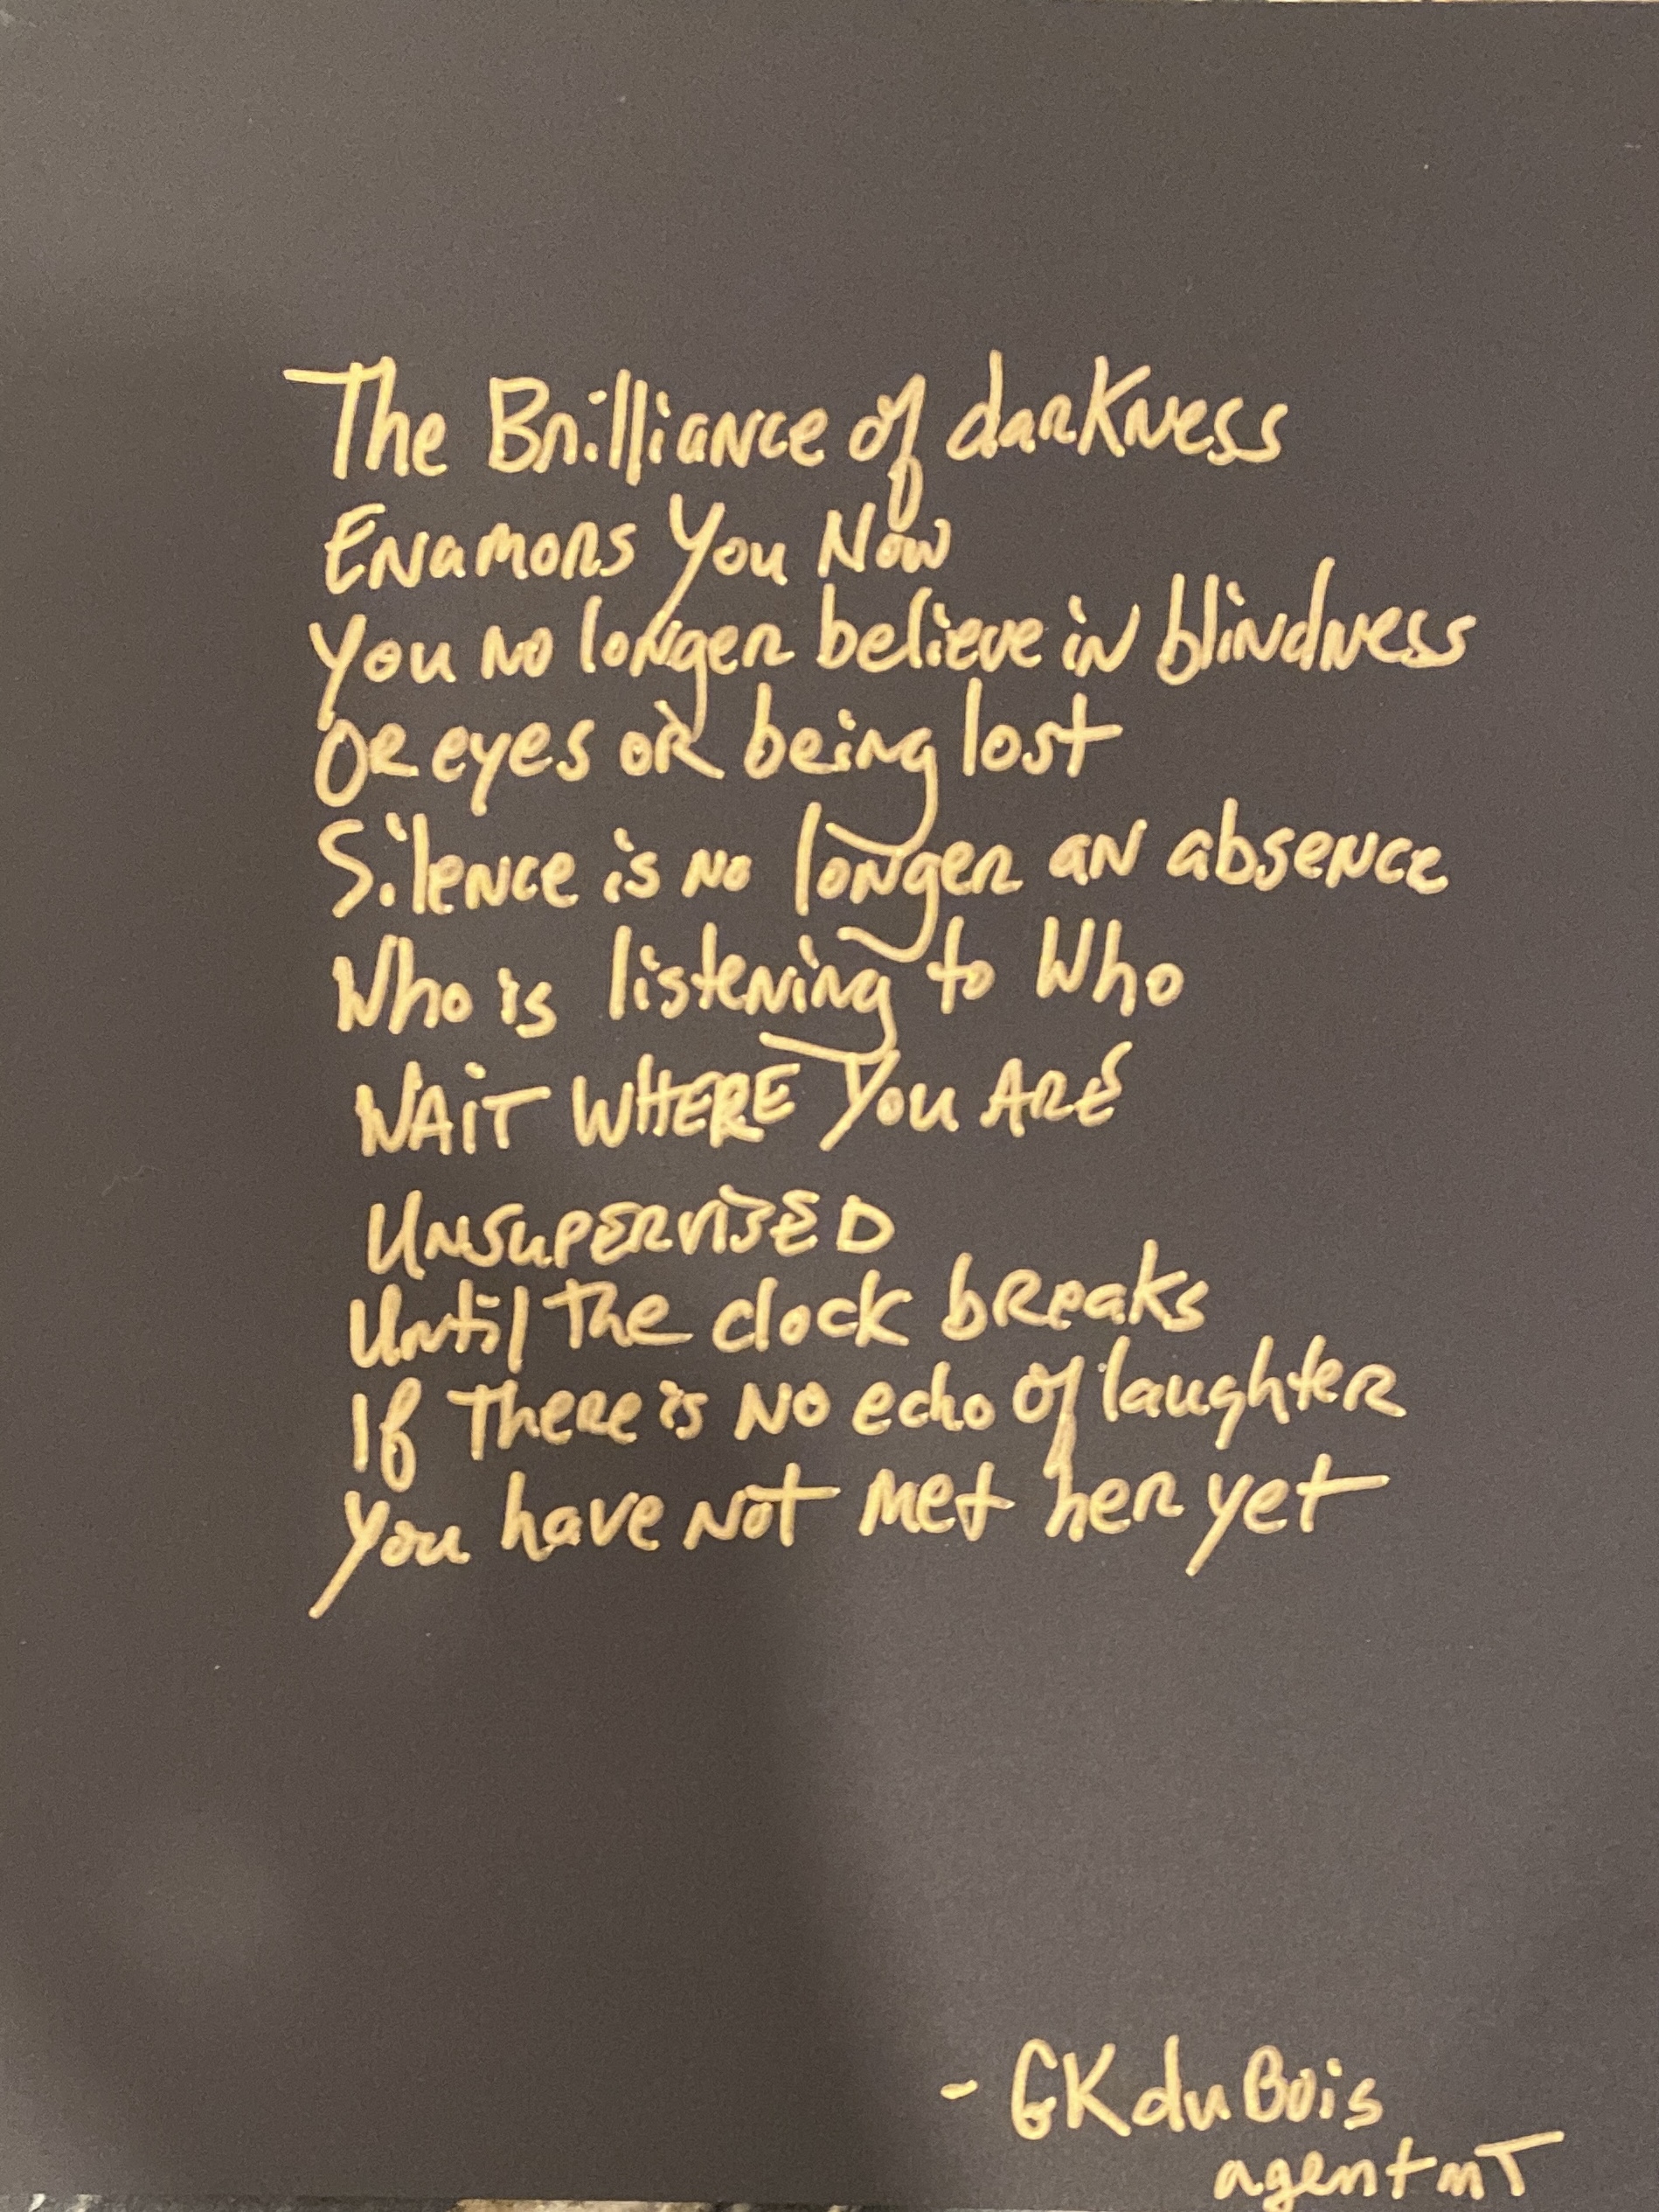 The Brilliance of darkness
Enamors You Now
You no longer believe in blindness
Or eyes or being lost
Silence is no longer an absence
Who is listening to Who
WAIT WHERE YOU ARE
UNSUPERVISED
Until The clock breaks
If There is No echo of laughter
You have not met her yet
- GK du Bois
agent mT